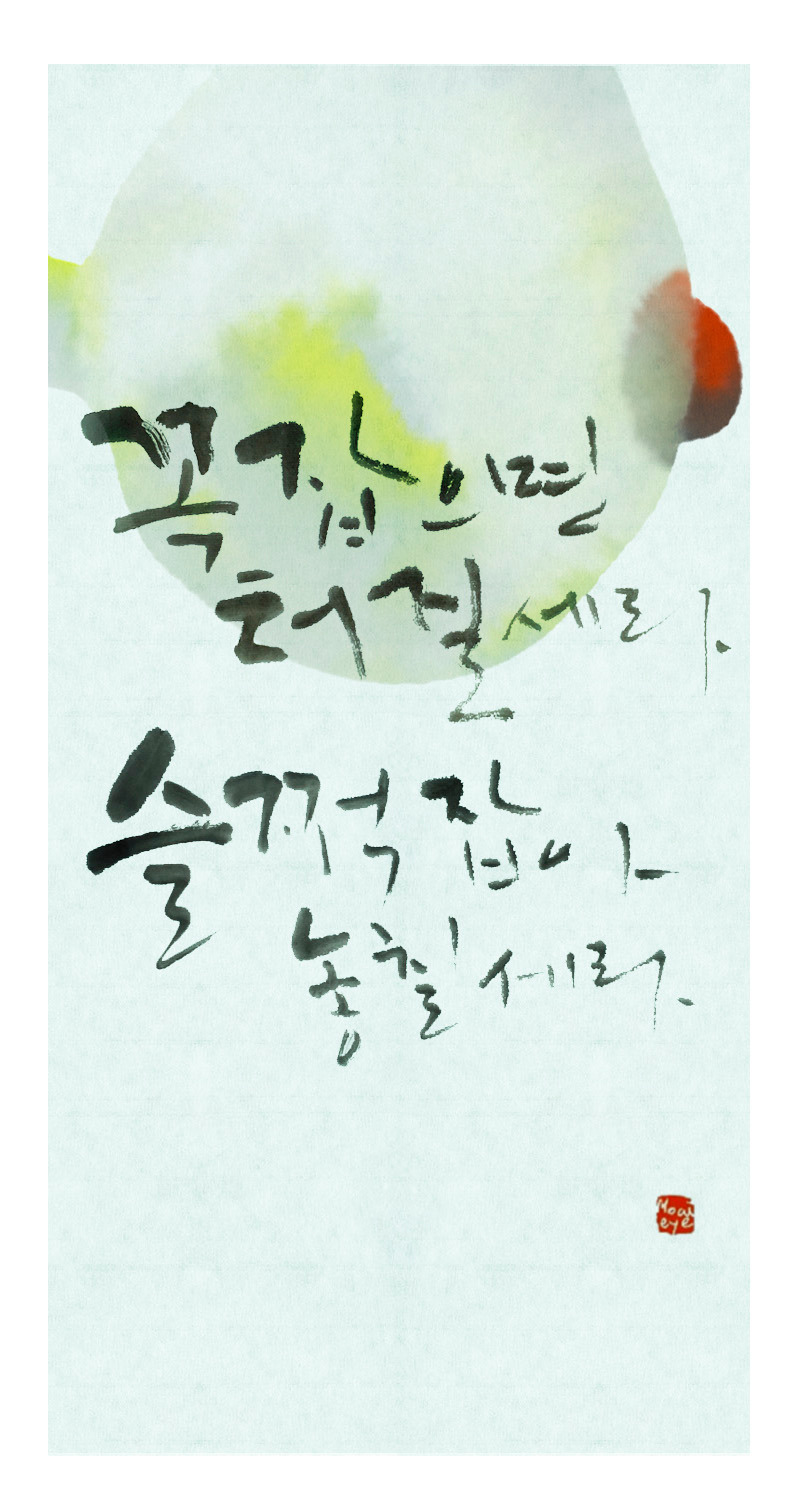 꼭 잡으면
터질세라.
슬쩍 잡아
놓칠세라.
Moai
eye